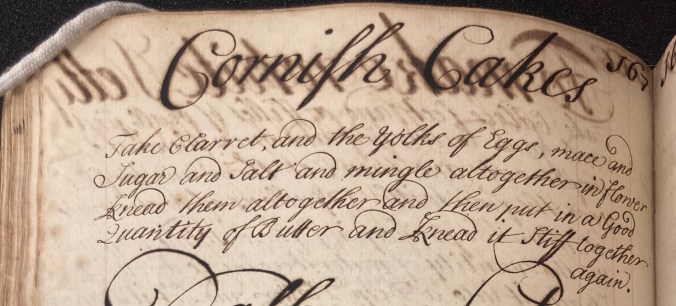 Cornish Cakes
Take Clarret, and the Yolks of Eggs, mace and
Sugar and Salt and mingle altogether in flower
Knead them altogether and then put in a Good
Quantity of Butter and Knead it Stiff together
again.